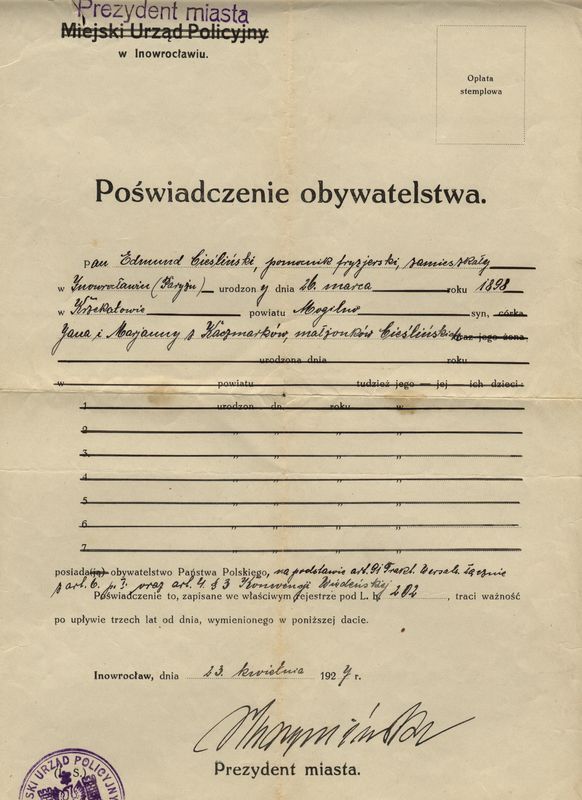 Prezydent miasta
Miejski Urząd Policyjny
w Inowrocławiu.
Opłata
stemplowa
Poświadczenie obywatelstwa.
Pan Edmund Cieśliński, pomocnik fryzjerski, zamieszkały
w Inowrocławiu (Paryżu) urodzony dnia 26. marca roku 1898
w Krzekotowie powiatu Mogilno syn, córka
Jana i Marjanny z Kaczmarków, małżonków Cieślińskich oraz jego żona
urodzona dnia roku
w powiatu tudzież jego — jej — ich dzieci:
1. urodzon dn. roku w
2. „ „ „ „
3. „ „ „ „
4. „ „ „ „
5. „ „ „ „
6. „ „ „ „
7. „ „ „ „
posiada(ją) obywatelstwo Państwa Polskiego, na podstawie art. 91 Trakt. Wersals. łącznie
z art. 6. p. 1. oraz art. 4. § 3 Konwencji Wiedeńskiej
Poświadczenie to, zapisane we właściwym rejestrze pod L. b. 202, traci ważność
po upływie trzech lat od dnia, wymienionego w poniższej dacie.
Inowrocław, dnia 23. kwietnia 1927 r.
Prezydent miasta.
(L. S.)
SKI URZĄD POLICYJNY